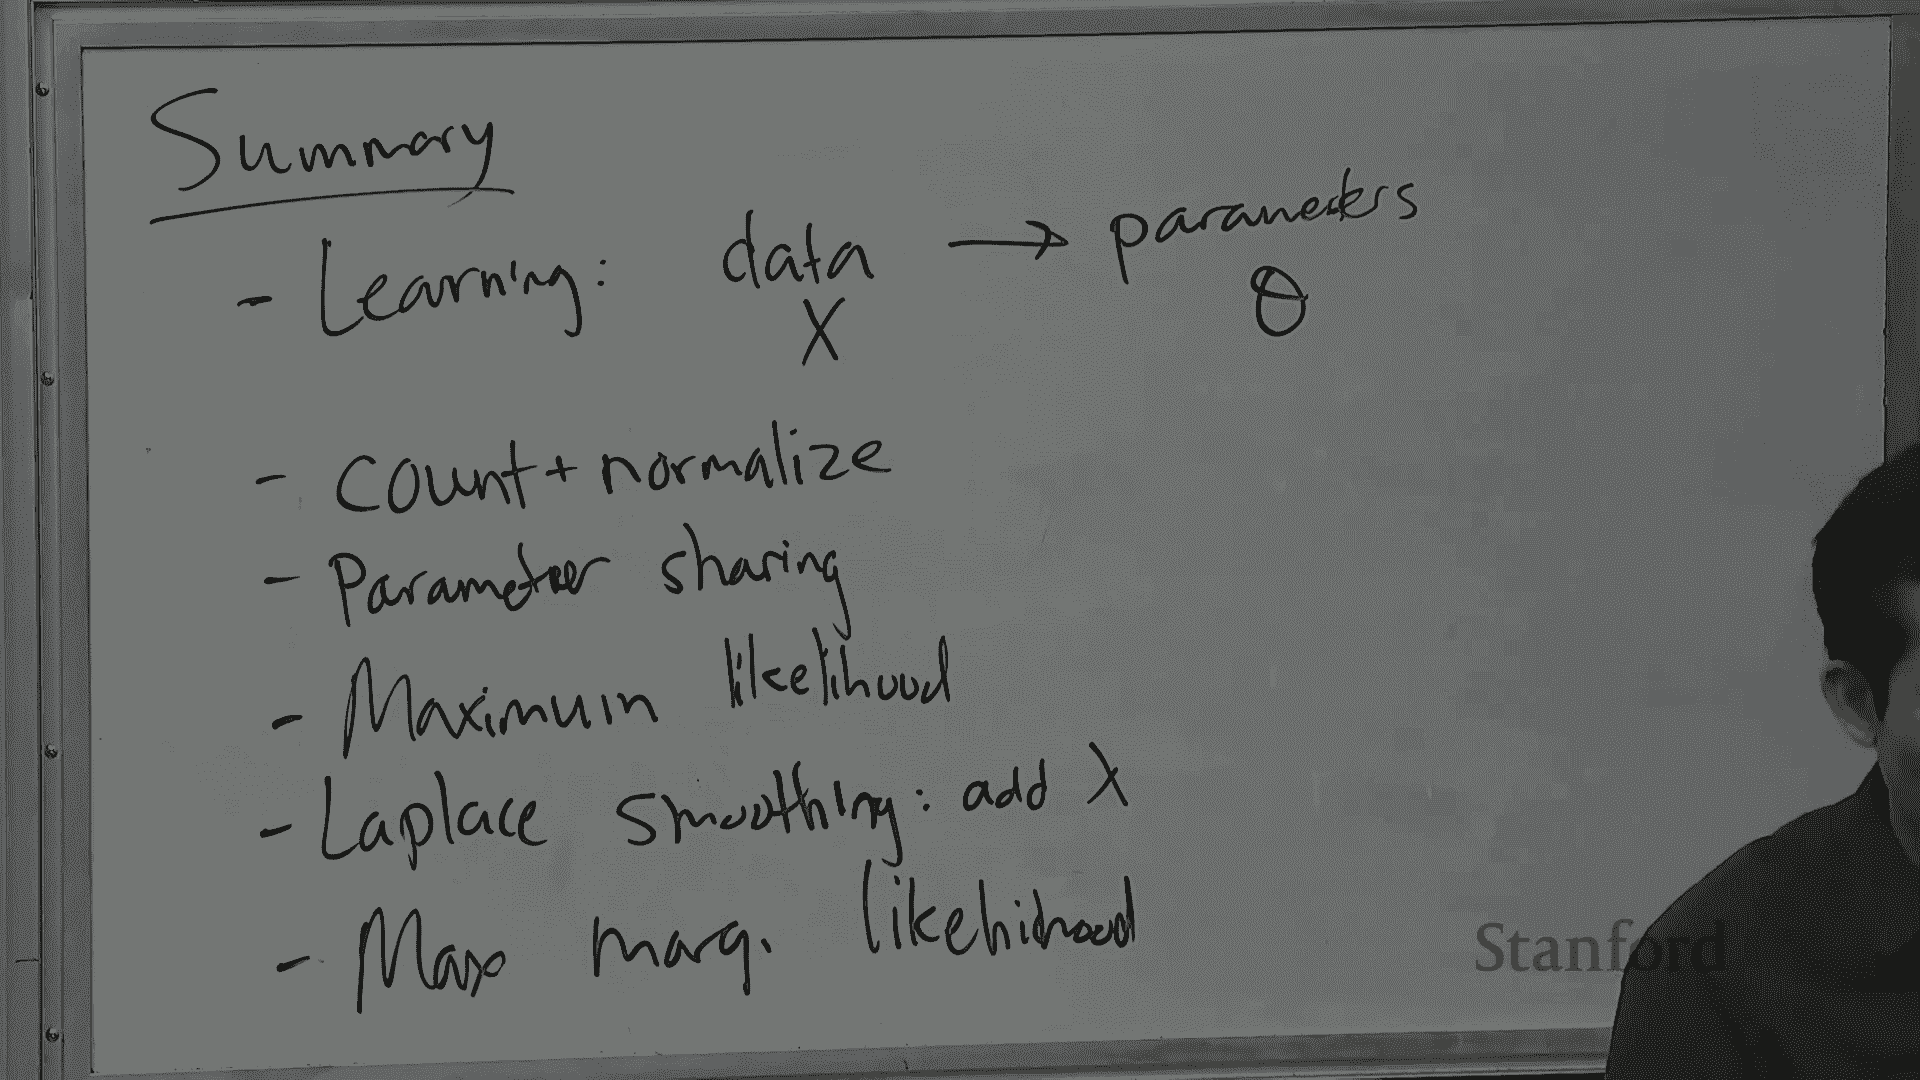 Summary
- Learning: data → parameters
X θ
- count + normalize
- Parameter sharing
- Maximum likelihood
- Laplace smoothing: add λ
- Max marg. likelihood
Stanford